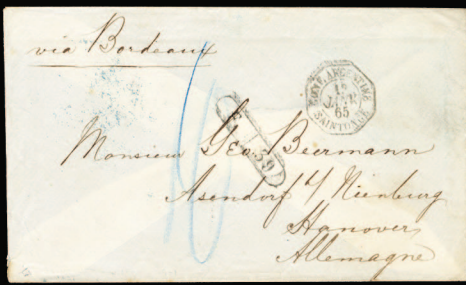 via Bordeaux
CONF. ARGENTINE
1e
65
SAINTONGE
Monsieur Geo Beermann
Asendorf b/ Nienburg
Hanover
Allemagne